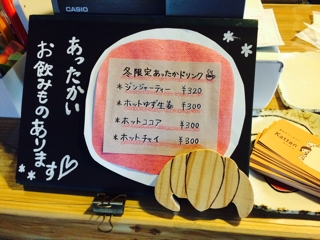 CASIO
あったかい
お飲みものあります♡
冬限定あったかドリンク
*ジンジャーティー ¥320
*ホットゆず生姜 ¥300
*ホットココア ¥300
*ホットチャイ ¥300
Kattan